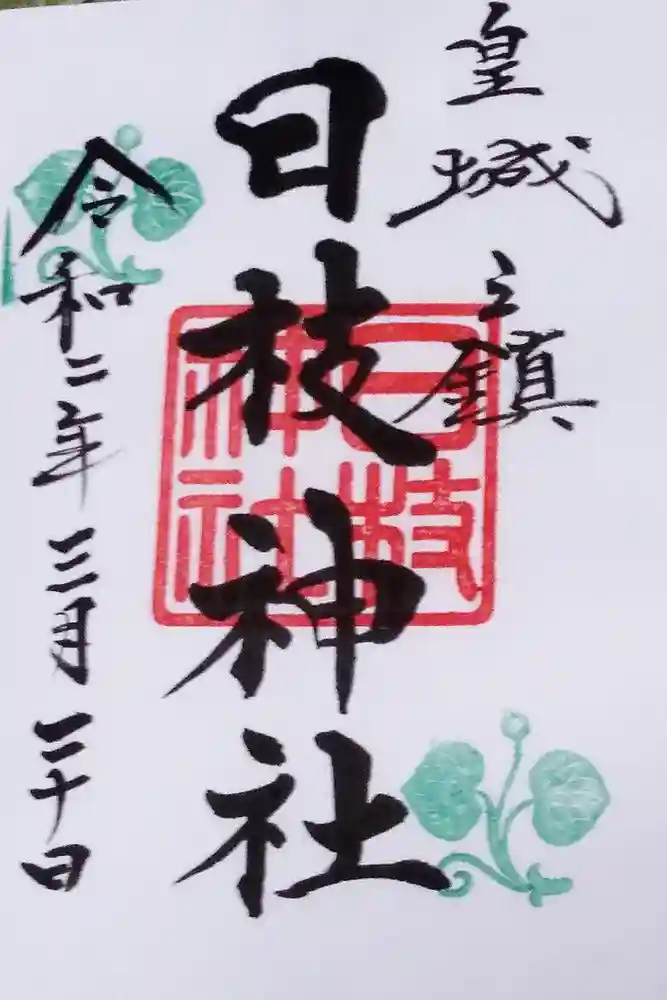 皇城之鎮
日枝神社
令和二年三月三十日
日枝
神社